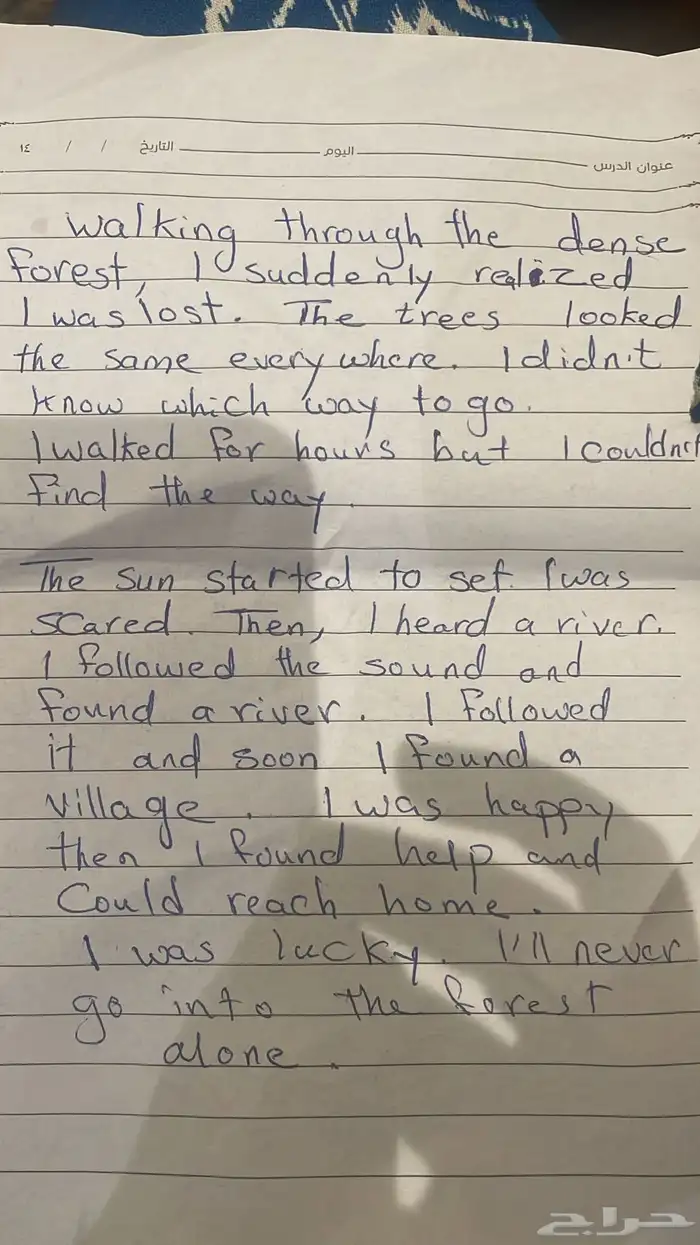 عنوان الدرس اليوم التاريخ / / ١٤
Walking through the dense
forest, I suddenly realized
I was lost. The trees looked
the same everywhere. I didn't
know which way to go.
I walked for hours but I couldn't
find the way.
The sun started to set. I was
scared. Then, I heard a river.
I followed the sound and
found a river. I followed
it and soon I found a
village. I was happy
then I found help and
Could reach home.
I was lucky. I'll never
go into the forest
alone.
حراج